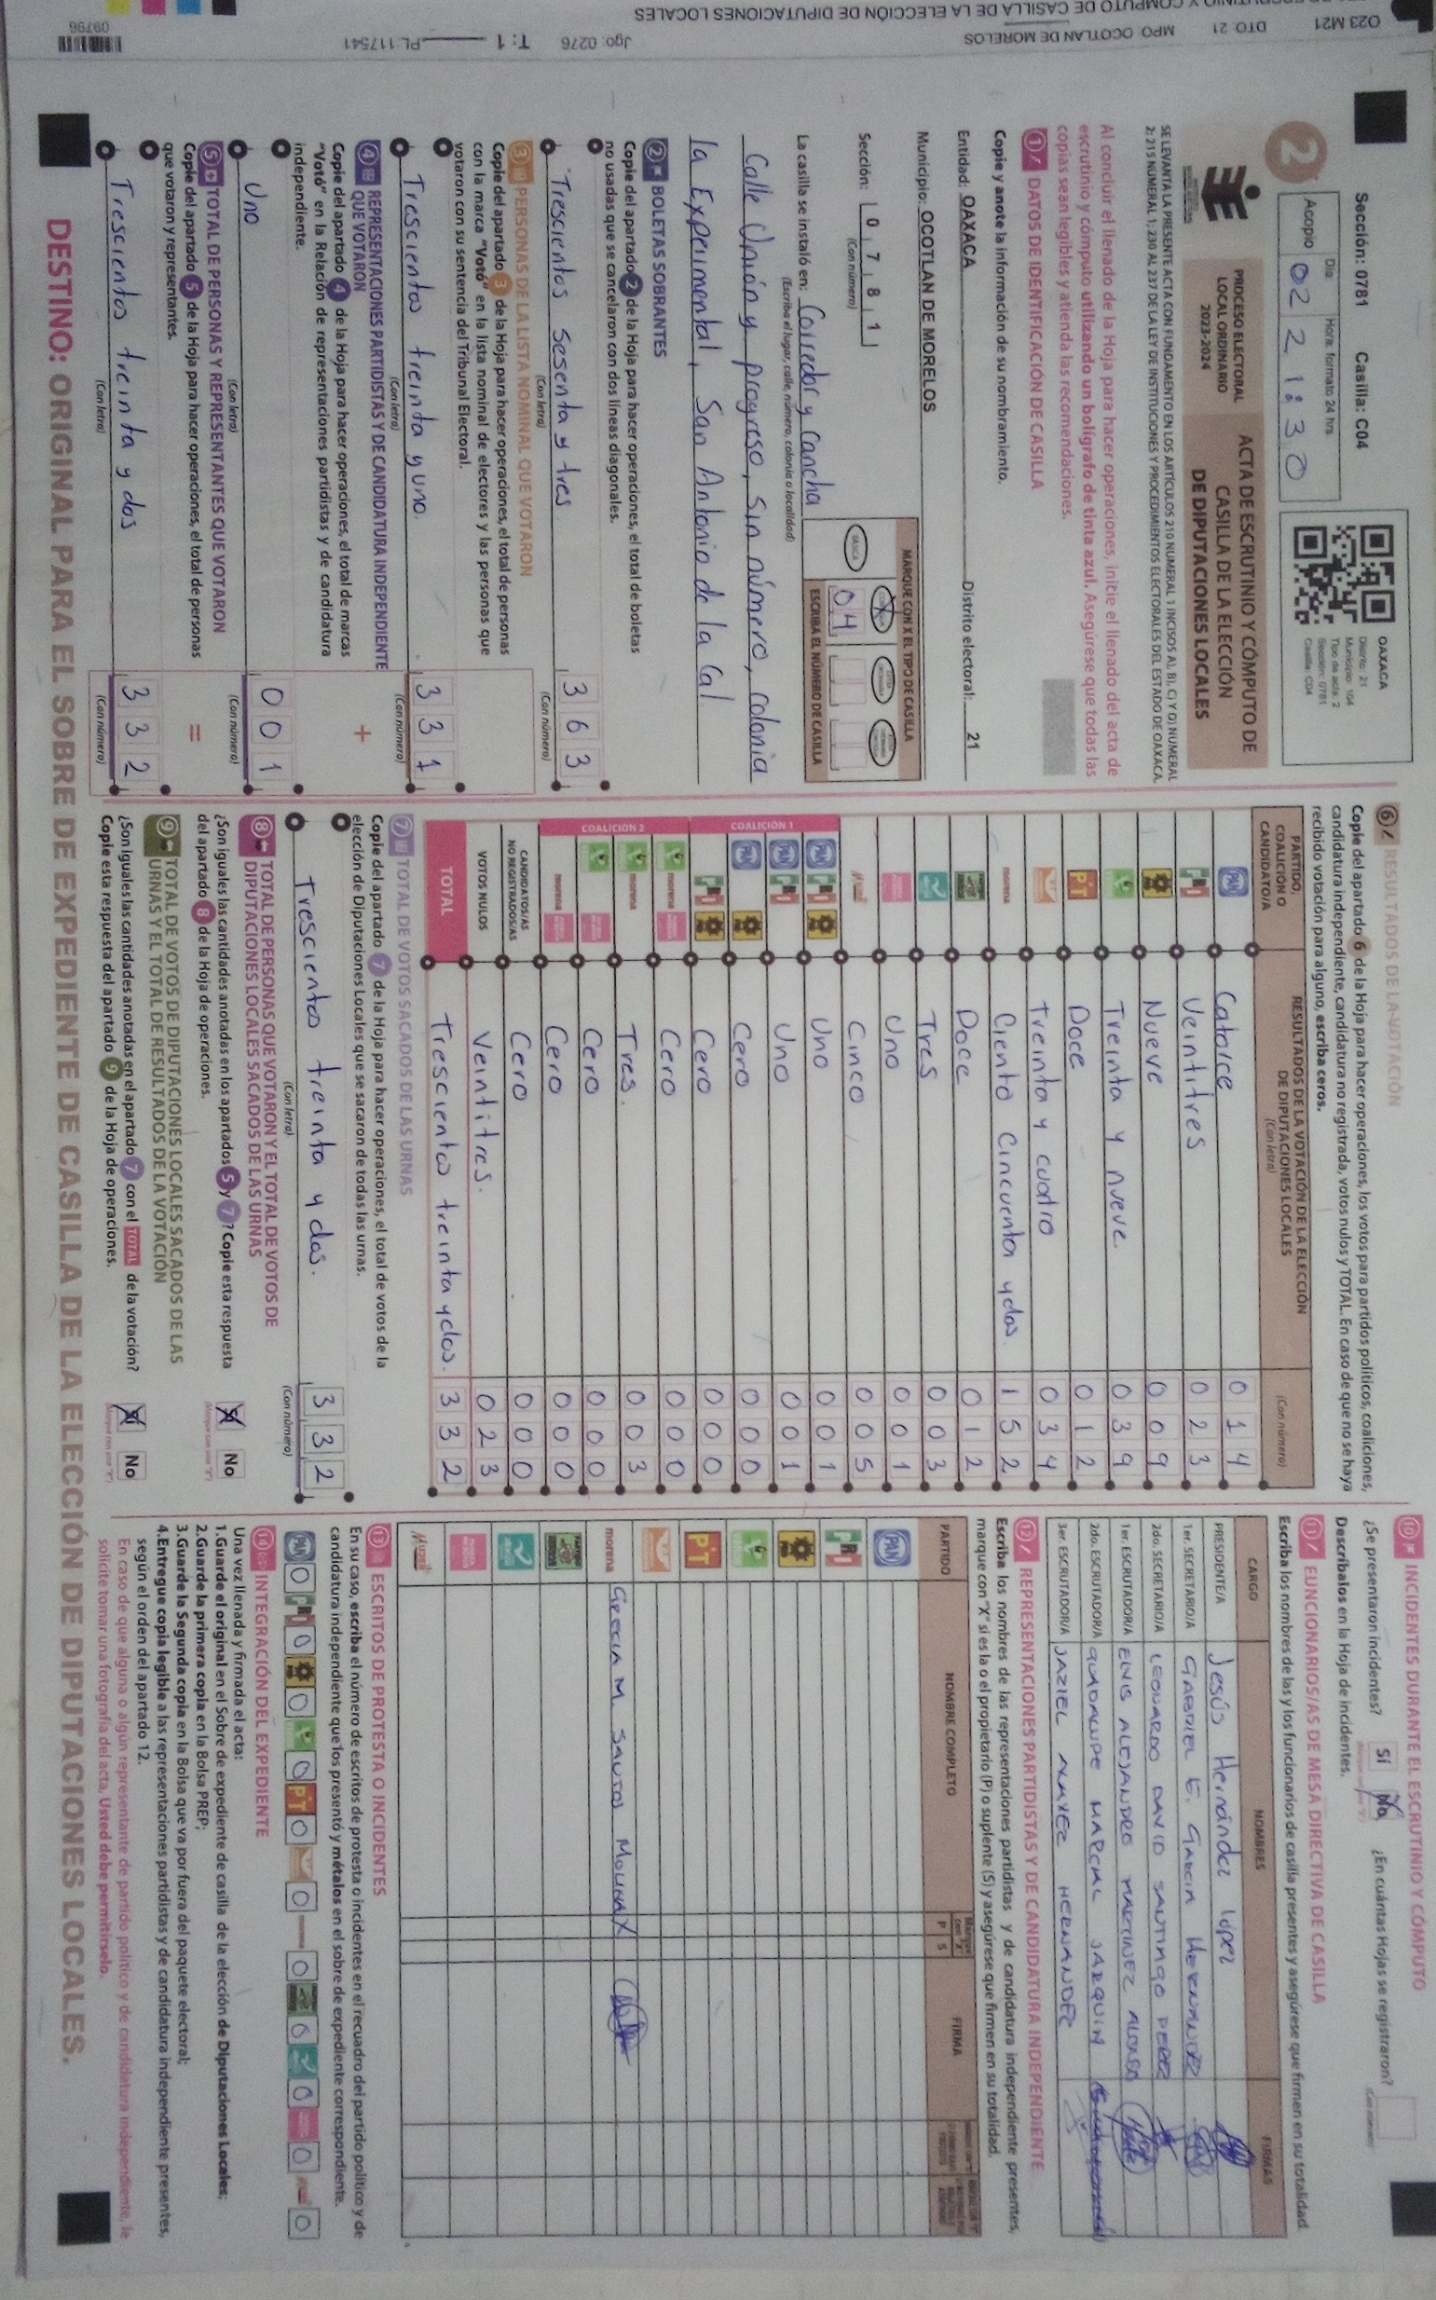 O23 M21 DTO 21 MPO OCOTLAN DE MORELOS
CÓMPUTO DE CASILLA DE LA ELECCIÓN DE DIPUTACIONES LOCALES
Jgo: 0276 T: 1 PL: 117541
09796
Sección: 0781 Casilla: C04
2
Día Hora, formato 24 hrs
Acopio 02 21:30
OAXACA
Distrito: 21
Municipio: 104
Tipo de acta: 2
Sección: 0781
Casilla: C04
PROCESO ELECTORAL
LOCAL ORDINARIO
2023-2024
ACTA DE ESCRUTINIO Y CÓMPUTO DE
CASILLA DE LA ELECCIÓN
DE DIPUTACIONES LOCALES
SE LEVANTA LA PRESENTE ACTA CON FUNDAMENTO EN LOS ARTÍCULOS 210 NUMERAL 1 INCISOS A), B), C) Y D) NUMERAL
2; 215 NUMERAL 1; 230 AL 237 DE LA LEY DE INSTITUCIONES Y PROCEDIMIENTOS ELECTORALES DEL ESTADO DE OAXACA.
Al concluir el llenado de la Hoja para hacer operaciones, inicie el llenado del acta de
escrutinio y cómputo utilizando un bolígrafo de tinta azul. Asegúrese que todas las
copias sean legibles y atienda las recomendaciones.
1 DATOS DE IDENTIFICACIÓN DE CASILLA
Copie y anote la información de su nombramiento.
Entidad: OAXACA Distrito electoral: 21
Municipio: OCOTLAN DE MORELOS
Sección: 0 7 8 1
(Con número)
MARQUE CON X EL TIPO DE CASILLA
BÁSICA X
ESCRIBA EL NÚMERO DE CASILLA
04
La casilla se instaló en: Corredor y cancha
(Escriba el lugar, calle, número, colonia o localidad)
Calle Unión y progreso, sin número, colonia
la Experimental, San Antonio de la Cal
2 BOLETAS SOBRANTES
Copie del apartado 2 de la Hoja para hacer operaciones, el total de boletas
no usadas que se cancelaron con dos líneas diagonales.
Trescientos sesenta y tres 3 6 3
(Con letra) (Con número)
3 PERSONAS DE LA LISTA NOMINAL QUE VOTARON
Copie del apartado 3 de la Hoja para hacer operaciones, el total de personas
con la marca "Votó" en la lista nominal de electores y las personas que
votaron con su sentencia del Tribunal Electoral.
Trescientos treinta y uno. 3 3 1
(Con letra) (Con número)
4 REPRESENTACIONES PARTIDISTAS Y DE CANDIDATURA INDEPENDIENTE
QUE VOTARON
+
Copie del apartado 4 de la Hoja para hacer operaciones, el total de marcas
"Votó" en la Relación de representaciones partidistas y de candidatura
independiente.
Uno 0 0 1
(Con letra) (Con número)
5 TOTAL DE PERSONAS Y REPRESENTANTES QUE VOTARON
=
Copie del apartado 5 de la Hoja para hacer operaciones, el total de personas
que votaron y representantes.
Trescientos treinta y dos 3 3 2
(Con letra) (Con número)
6 RESULTADOS DE LA VOTACIÓN
Copie del apartado 6 de la Hoja para hacer operaciones, los votos para partidos políticos, coaliciones,
candidatura independiente, candidatura no registrada, votos nulos y TOTAL. En caso de que no se haya
recibido votación para alguno, escriba ceros.
PARTIDO,
COALICIÓN O
CANDIDATO/A
RESULTADOS DE LA VOTACIÓN DE LA ELECCIÓN
DE DIPUTACIONES LOCALES
(Con letra)
(Con número)
PAN Catorce 0 1 4
PRI Veintitres 0 2 3
Nueve 0 0 9
Treinta y nueve. 0 3 9
PT Doce 0 1 2
Treinta y cuatro 0 3 4
morena Ciento cincuenta y dos 1 5 2
Doce 0 1 2
Tres 0 0 3
Uno 0 0 1
Cinco 0 0 5
COALICIÓN 1
PAN PRI Uno 0 0 1
PAN PRI Uno 0 0 1
PAN Cero 0 0 0
PRI Cero 0 0 0
COALICIÓN 2
morena Cero 0 0 0
morena Tres. 0 0 3
Cero 0 0 0
morena Cero 0 0 0
CANDIDATOS/AS
NO REGISTRADOS/AS Cero 0 0 0
VOTOS NULOS Veintitres. 0 2 3
TOTAL Trescientos treinta y dos. 3 3 2
7 TOTAL DE VOTOS SACADOS DE LAS URNAS
Copie del apartado 7 de la Hoja para hacer operaciones, el total de votos de la
elección de Diputaciones Locales que se sacaron de todas las urnas.
Trescientos treinta y dos. 3 3 2
(Con letra) (Con número)
8 TOTAL DE PERSONAS QUE VOTARON Y EL TOTAL DE VOTOS DE
DIPUTACIONES LOCALES SACADOS DE LAS URNAS
¿Son iguales las cantidades anotadas en los apartados 5 y 7? Copie esta respuesta
del apartado 8 de la Hoja de operaciones.
Sí No
9 TOTAL DE VOTOS DE DIPUTACIONES LOCALES SACADOS DE LAS
URNAS Y EL TOTAL DE RESULTADOS DE LA VOTACIÓN
¿Son iguales las cantidades anotadas en el apartado 7 con el TOTAL de la votación?
Copie esta respuesta del apartado 9 de la Hoja de operaciones.
Sí No
10 INCIDENTES DURANTE EL ESCRUTINIO Y CÓMPUTO
¿Se presentaron incidentes? Sí No ¿En cuántas Hojas se registraron?
Descríbalos en la Hoja de incidentes.
11 FUNCIONARIOS/AS DE MESA DIRECTIVA DE CASILLA
Escriba los nombres de las y los funcionarios de casilla presentes y asegúrese que firmen en su totalidad.
CARGO NOMBRES FIRMAS
PRESIDENTE/A Jesús Hernández López
1er. SECRETARIO/A GABRIEL E. GARCIA HERNANDEZ
2do. SECRETARIO/A LEONARDO DAVID SANTIAGO PEREZ
1er. ESCRUTADOR/A ELVIS ALEJANDRO MARTINEZ ALONSO
2do. ESCRUTADOR/A GUADALUPE MARCIAL JARQUIN
3er. ESCRUTADOR/A JAZIEL HERNANDEZ
12 REPRESENTACIONES PARTIDISTAS Y DE CANDIDATURA INDEPENDIENTE
Escriba los nombres de las representaciones partidistas y de candidatura independiente presentes,
marque con "X" si es la o el propietario (P) o suplente (S) y asegúrese que firmen en su totalidad.
PARTIDO NOMBRE COMPLETO P S FIRMA
PAN
PRI
PT
morena GRECIA M SANTOS MOLINA X
13 ESCRITOS DE PROTESTA O INCIDENTES
En su caso, escriba el número de escritos de protesta o incidentes en el recuadro del partido político y de
candidatura independiente que los presentó y métalos en el sobre de expediente correspondiente.
PAN 0 PRI 0 0 0 PT 0 0 0 0 0 0 0
14 INTEGRACIÓN DEL EXPEDIENTE
Una vez llenada y firmada el acta:
1.Guarde el original en el Sobre de expediente de casilla de la elección de Diputaciones Locales;
2.Guarde la primera copia en la Bolsa PREP;
3.Guarde la Segunda copia en la Bolsa que va por fuera del paquete electoral;
4.Entregue copia legible a las representaciones partidistas y de candidatura independiente presentes,
según el orden del apartado 12.
En caso de que alguna o algún representante de partido político y de candidatura independiente, le
solicite tomar una fotografía del acta, Usted debe permitírselo.
DESTINO: ORIGINAL PARA EL SOBRE DE EXPEDIENTE DE CASILLA DE LA ELECCIÓN DE DIPUTACIONES LOCALES.